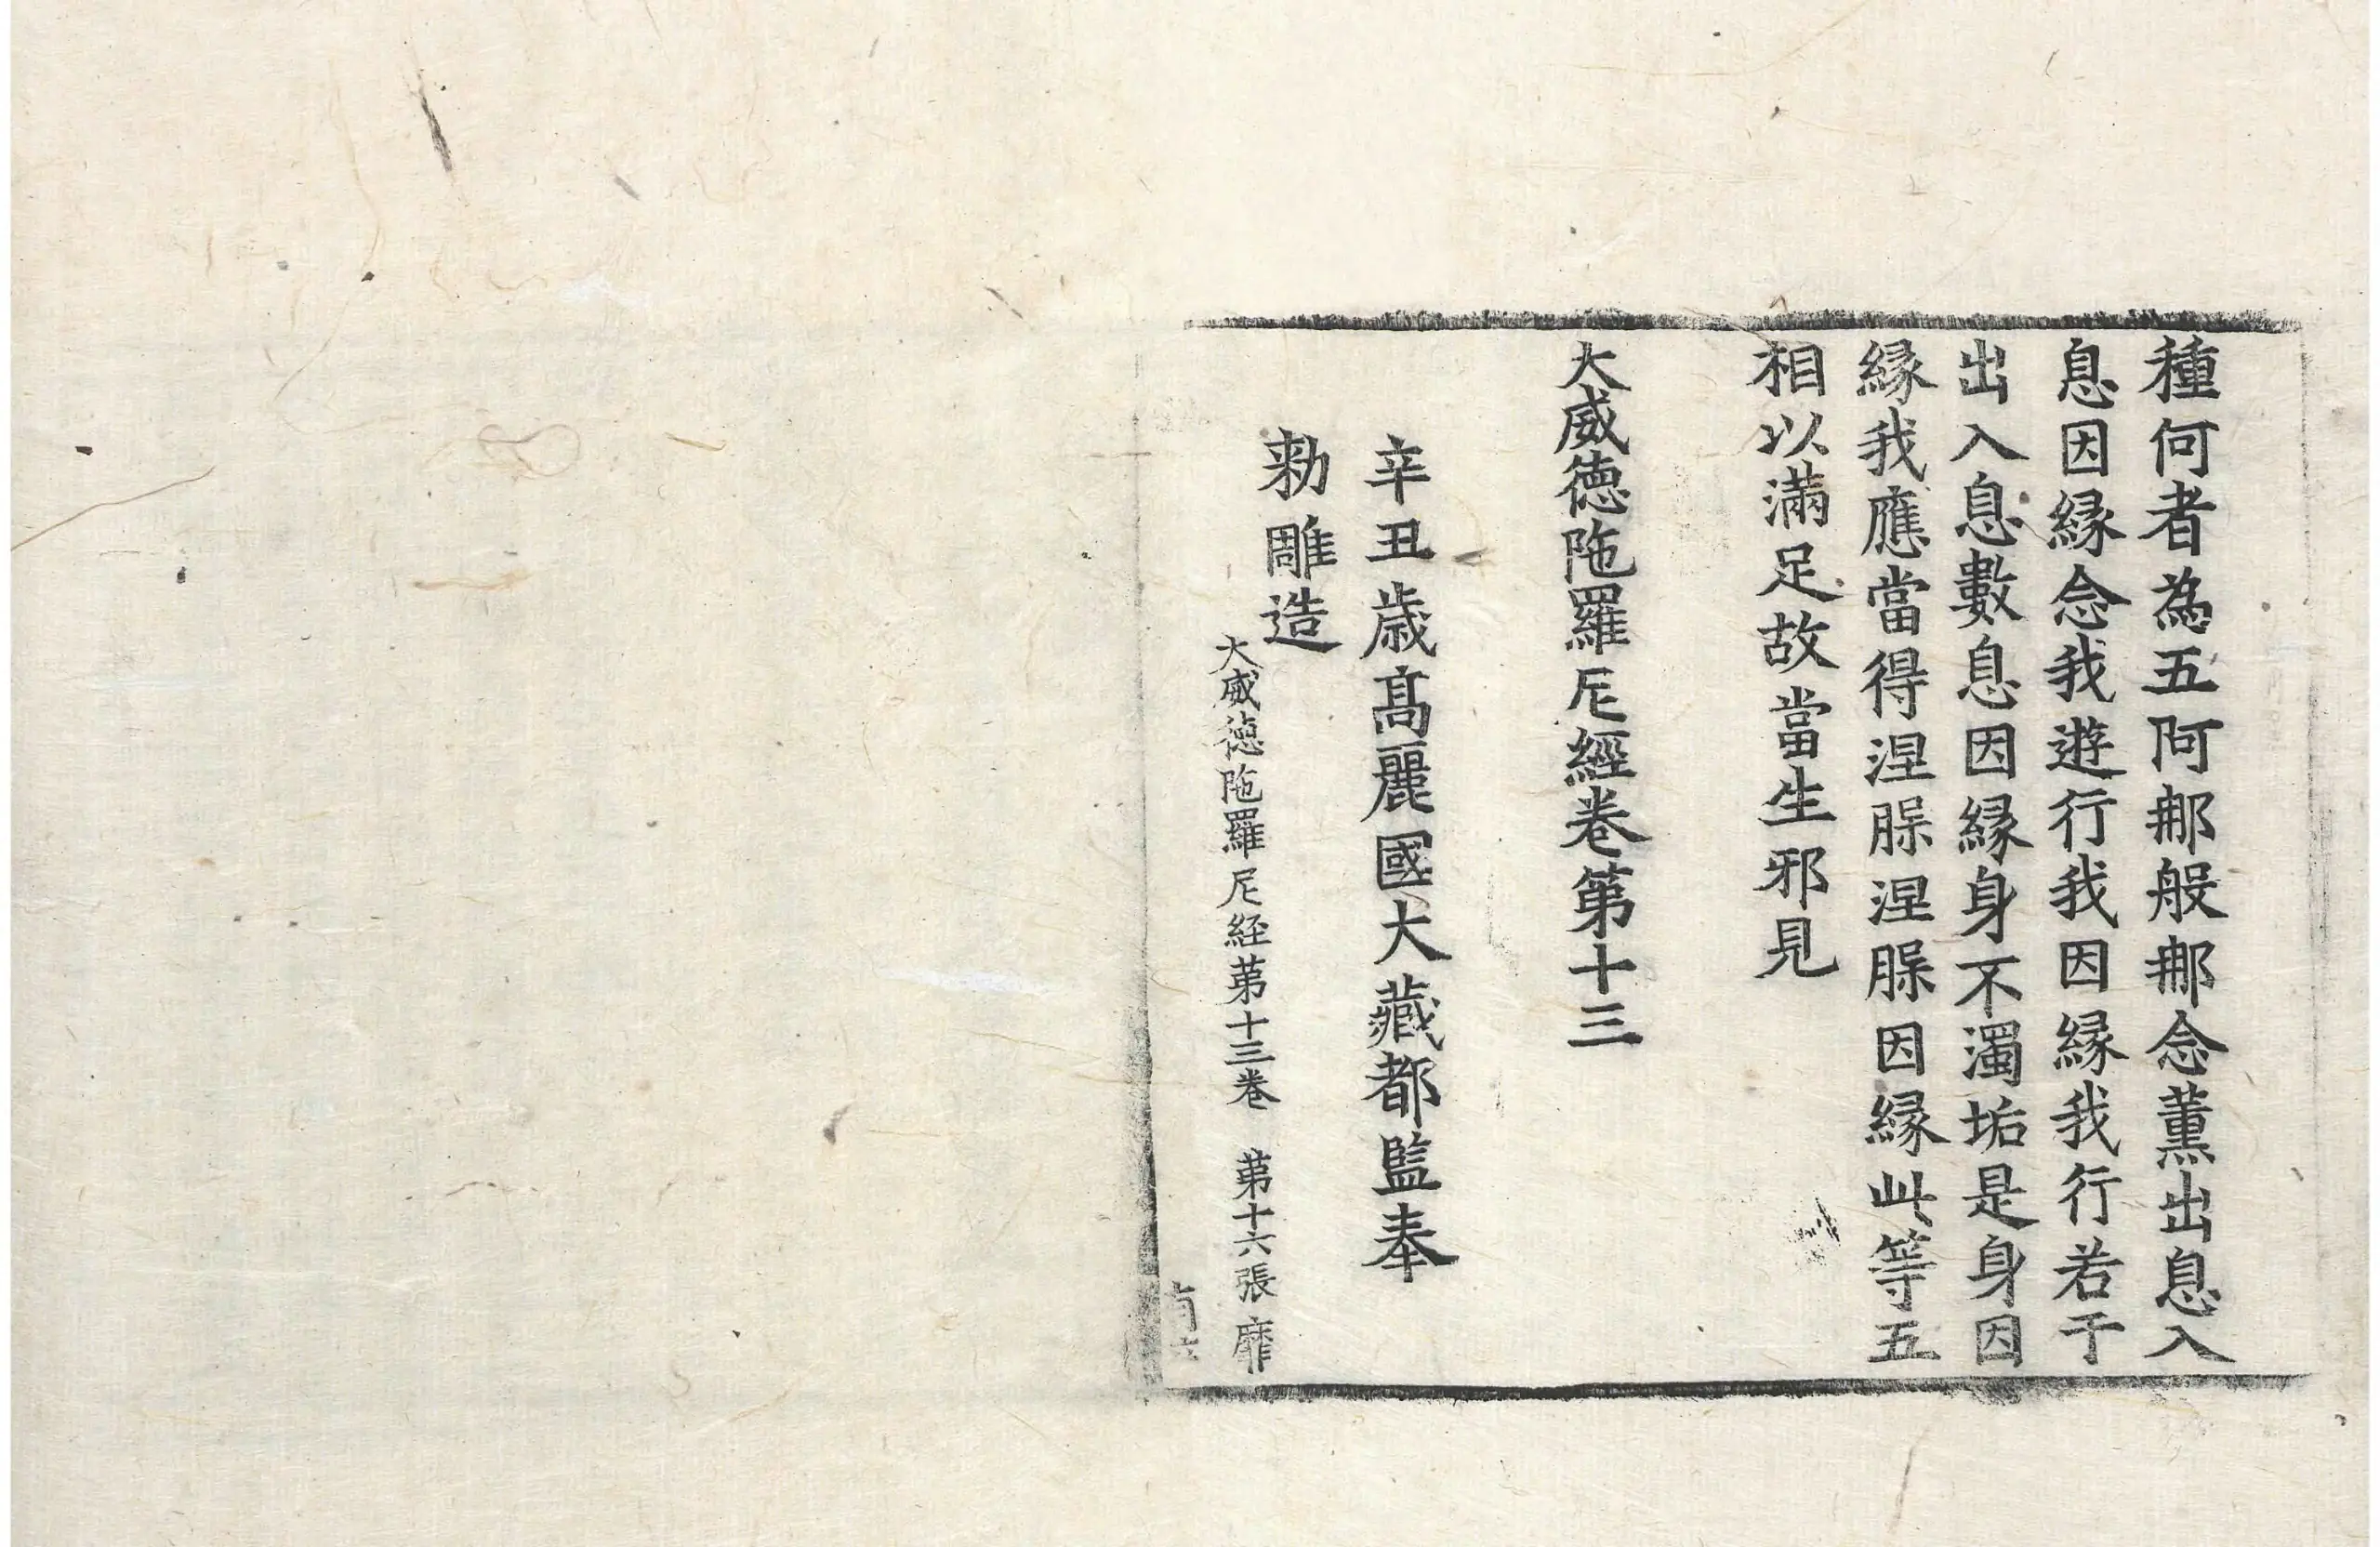 種何者為五阿那般那念薰出息入
息因緣念我遊行我因緣我行若干
出入息數息因緣身不濁垢是身因
緣我應當得涅䏶涅䏶因緣此等五
相以滿足故當生邪見
大威德陁羅尼經卷第十三
辛丑歲高麗國大藏都監奉
勑雕造
大威德陁羅尼経苐十三卷　苐十六張　靡